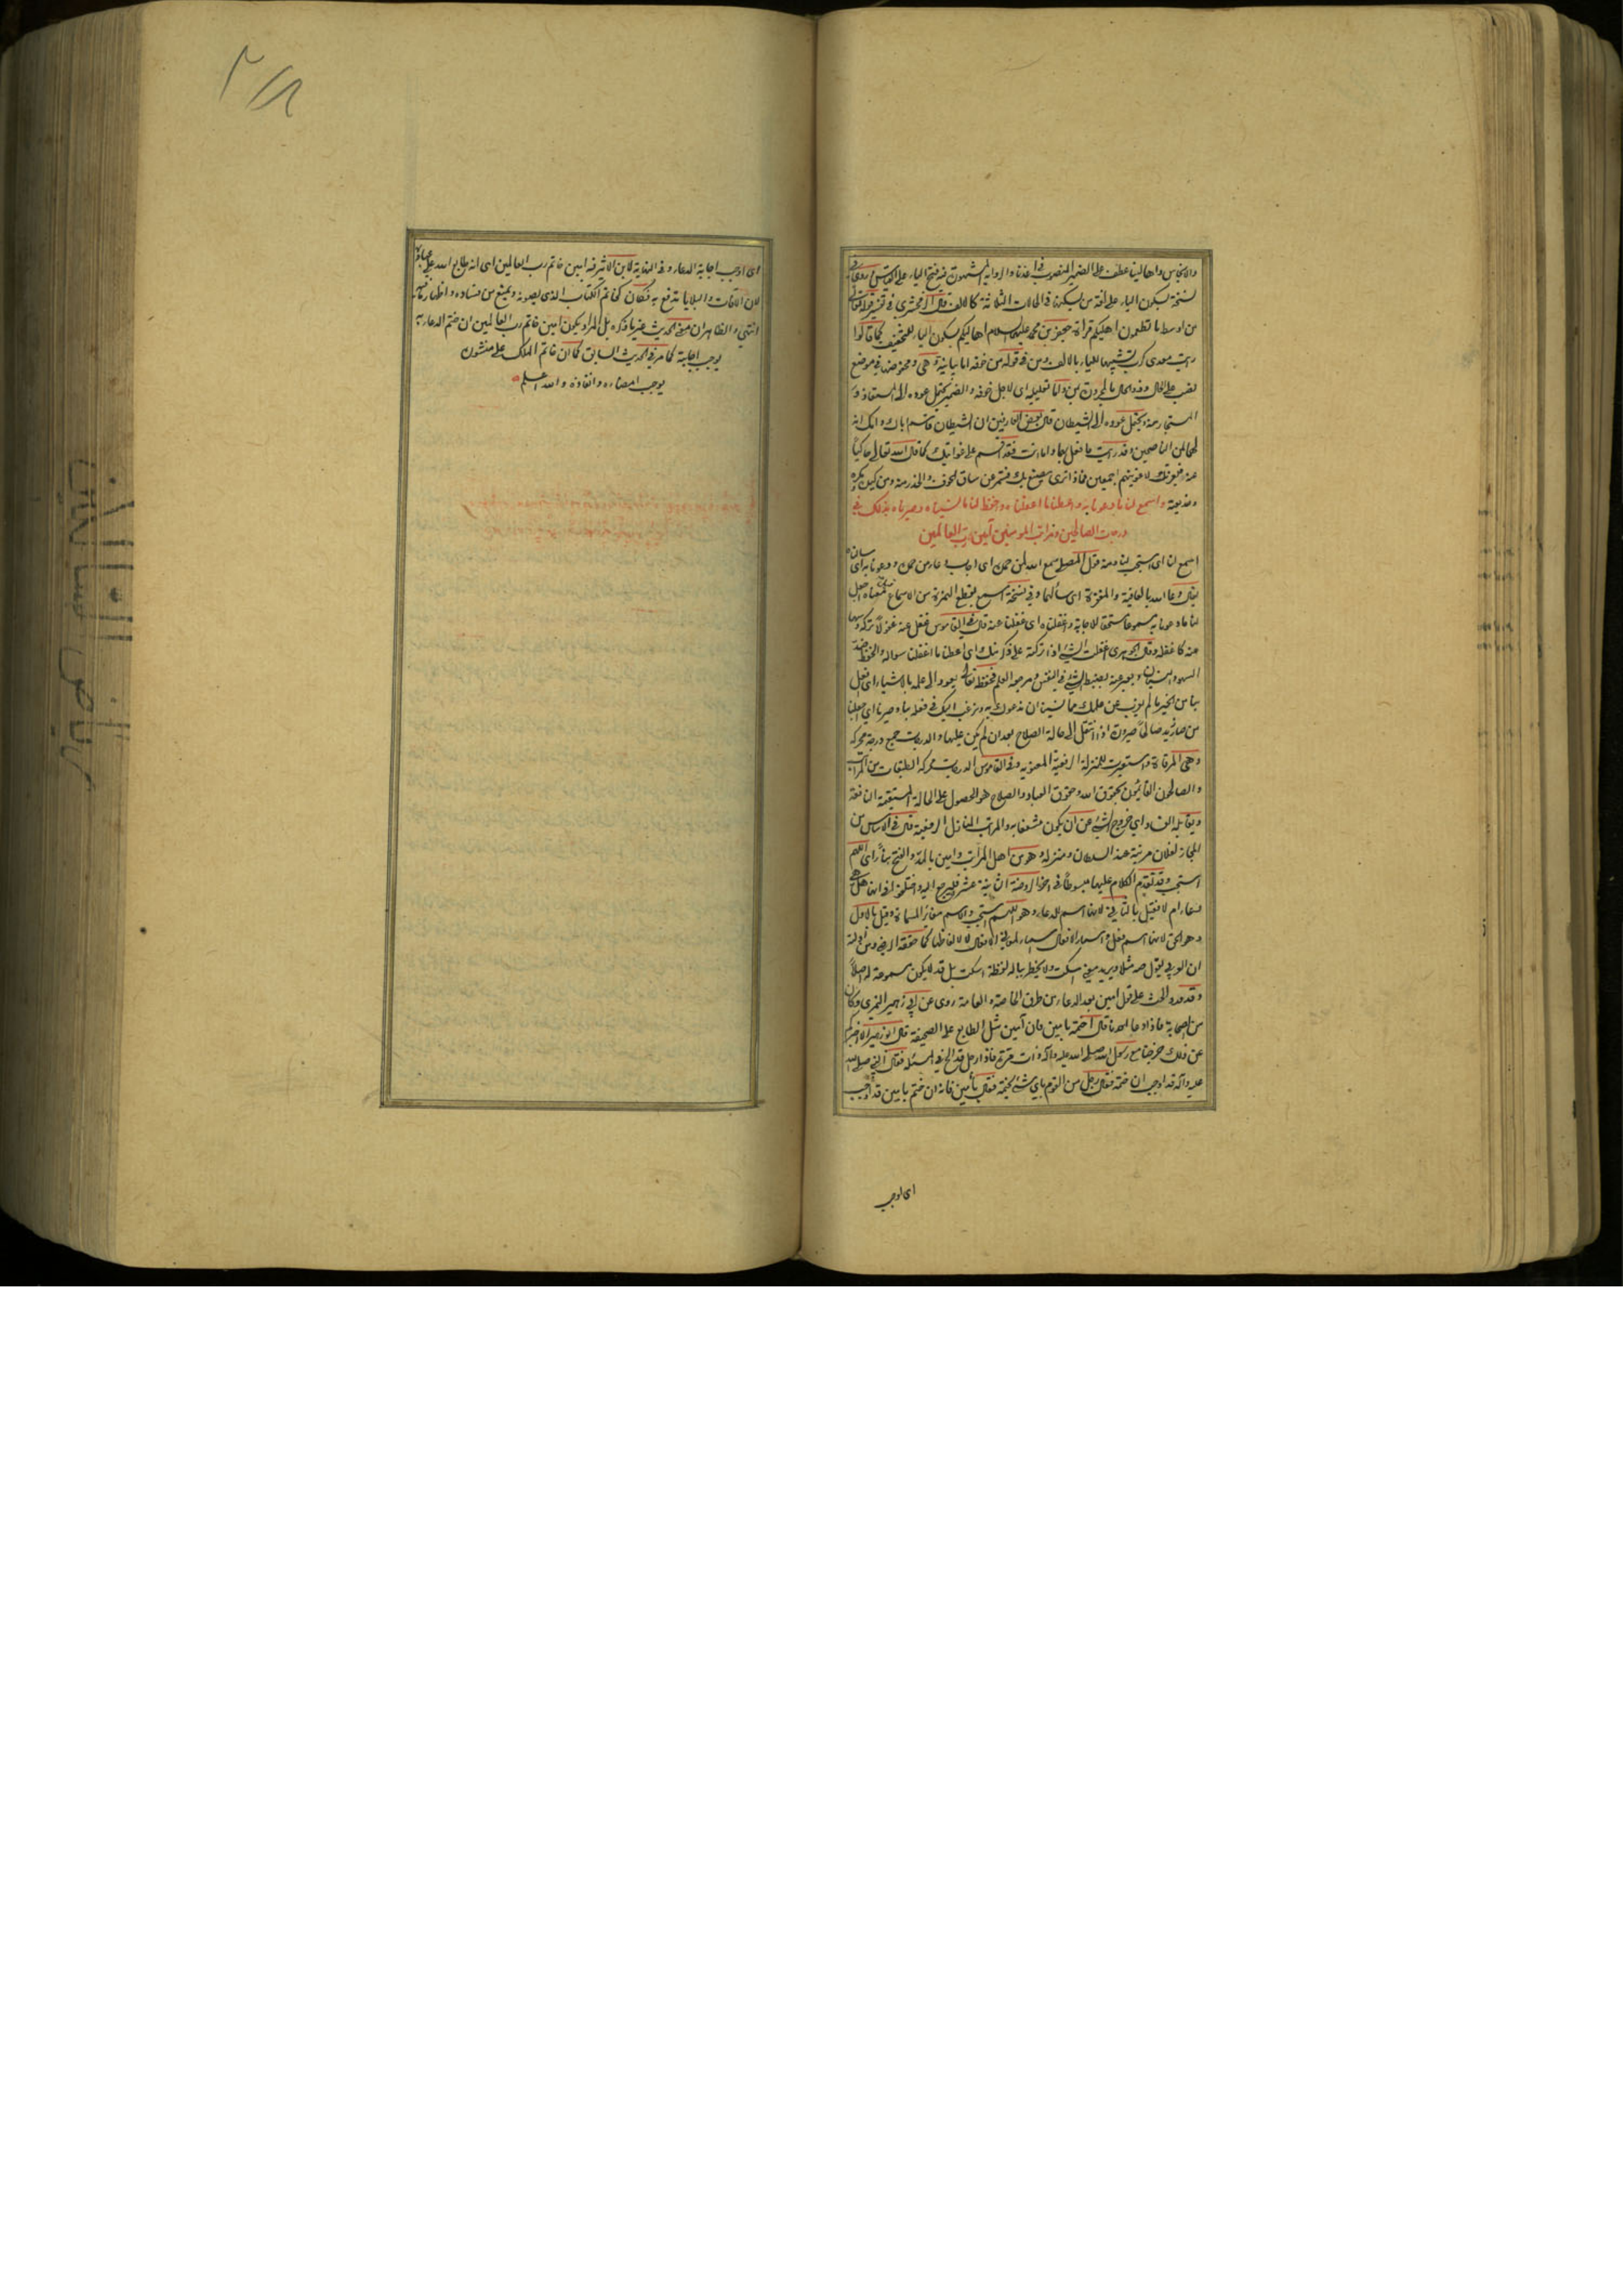 والانجاس واهالينا عطف على الضمير المنصوب في اعذنا والرواية المشهورة فيه فتح الياء على القياس وروى في
نسخة بسكون الياء على لغة من يسكنها في الحالات الثلاثة كالالف قال الزمخشري في تفسير قوله تعالى
من اوسط ما تطعمون اهليكم قراءة جعفر بن محمد عليهما السلام اهاليكم بسكون الياء للتخفيف كما قالوا
رايت معدي كرب تشبيها للياء بالالف ومن في قوله من خوفه اما بيانية وهي ومخفوضها في موضع
نصب على الحال واما تعليلية اي لاجل خوفه والضمير يحتمل عوده الى المستعاذ و
المستجار منه ويحتمل عوده الى الشيطان قال بعض العارفين ان الشيطان قاسم اباك وامك انه
لهما لمن الناصحين وقد رايت ما فعل بهما واما انت فقد اقسم على غوايتك كما قال الله تعالى حاكيا
عنه فبعزتك لاغوينهم اجمعين فماذا ترى يصنع بك فشمر عن ساق الخوف والحذر منه ومن كيده ومكره
وخديعته واسمع لنا ما دعونا به واعطنا ما اغفلناه واحفظ لنا ما نسيناه وصيرنا بذلك في
درجات الصالحين ومراتب المومنين آمين رب العالمين
اسمع لنا اي استجب لنا ومنه قول المصلي سمع الله لمن حمده اي اجاب دعاء من حمده ودعونا به اي سالناه
يقال دعا الله بالعافية والمغفرة اي سألهما وفي نسخة اسمع بقطع الهمزة من الاسماع فمعناه اجعل
لنا ما دعونا به مسموعا مستحقا للاجابة واغفلناه اي غفلنا عنه قال في القاموس غفل عنه غفولا تركه وسها
عنه كاغفله وقال الجوهري اغفلت الشئ اذا تركته على ذكر منك اي اعطنا ما اغفلنا سواله والحفظ ضد
السهو والنسيان ويعبر عنه بضبط الشئ في النفس ومرجعه العلم فحفظه تعالى يعود الى علمه بالاشياء اي افعل
بنا من الخير ما لم يعزب عن علمك مما نسينا ان ندعوك به ونرغب اليك في فعله بنا وصيرنا اي اجعلنا
من صار زيد صالحا صيرورة اذا انتقل الى حالة الصلاح بعد ان لم يكن عليها والدرجات جمع درجة محركة
وهي المرقاة واستعيرت للمنزلة الرفيعة المعنوية وفي القاموس الدرجات محركة الطبقات من المراتب
والصالحون القائمون بحقوق الله وحقوق العباد والصلاح هو الحصول على الحالة المستقيمة النافعة
ويقابله الفساد اي خروج الشئ عن ان يكون منتفعا به والمراتب المنازل الرفيعة قال في الاساس من
المجاز لفلان مرتبة عند السلطان ومنزلة وهو من اهل المراتب وامين بالمد والفتح بناء اي اللهم
استجب وقد تقدم الكلام عليها مبسوطا في اخر الروضة الثانية عشر فليرجع اليه واختلفوا في انها هل هي
دعاء ام لا فقيل بالثاني لانها اسم للدعاء وهو اللهم استجب والاسم مغاير لمسماه وقيل بالاول
وهو الحق لانها اسم فعل واسماء الافعال اسماء لمعاني الافعال لا لالفاظها كما حققه الرضي ومن ادلته
ان العربي يقول صه مثلا ويريد معنى اسكت ولا يخطر بباله لفظة اسكت بل قد لا يكون مسموعة له اصلا
وقد ورد الحث على قول امين بعد الدعاء من طرق الخاصة والعامة روى عن ابي زهير النميري وكان
من الصحابة فاذا دعا احدنا قال اختمه بامين فان آمين مثل الطابع على الصحيفة قال ابو زهير الا اخبركم
عن ذلك خرجنا مع رسول الله صلى الله عليه وآله ذات مرة فاذا رجل قد الح في المسئلة فقال النبي صلى الله
عليه وآله قد اوجب ان ختم فقال رجل من القوم باي شئ يختم فقال بآمين فانه ان ختم بامين قد اوجب
اى اوجب
اى اوجب اجابة الدعاء وفي النهاية لابن الاثير فيه امين خاتم رب العالمين اى انه طابع الله على عباده
لان الافات والبلايا تدفع به فكان كخاتم الكتاب الذي يصونه ويمنع من فساده واظهار ما فيه
انتهى والظاهر ان معنى الحديث غير ما ذكره بل المراد بكون امين خاتم رب العالمين ان ختم الدعاء به
يوجب اجابته كما مر في الحديث السابق كما ان خاتم الملك على منشور
يوجب امضاءه وانفاذه والله اعلم